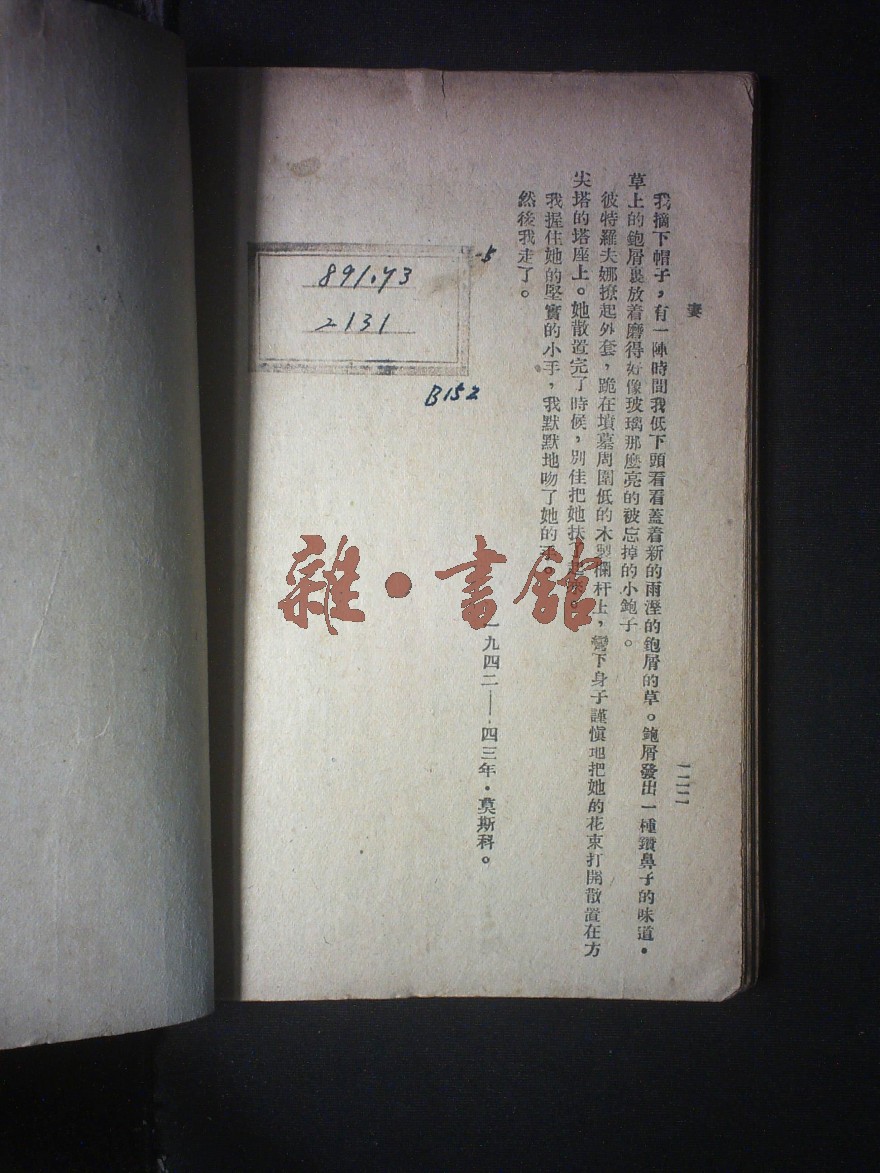 妻
一二二
我摘下帽子，有一陣時間我低下頭看看蓋着新的雨溼的鉋屑的草。鉋屑發出一種鑽鼻子的味道。
草上的鉋屑裏放着磨得好像玻璃那麼亮的被忘掉的小鉋子。
彼特羅夫娜撩起外套，跪在墳墓周圍低的木製欄杆上，彎下身子謹愼地把她的花束打開散置在方
尖塔的塔座上。她散置完了時候，別佳把她扶了起來。
我握住她的堅實的小手，我默默地吻了她的手。
然後我走了。
一九四二——四三年・莫斯科。
891.73
2131
-5
B152
雜・書館